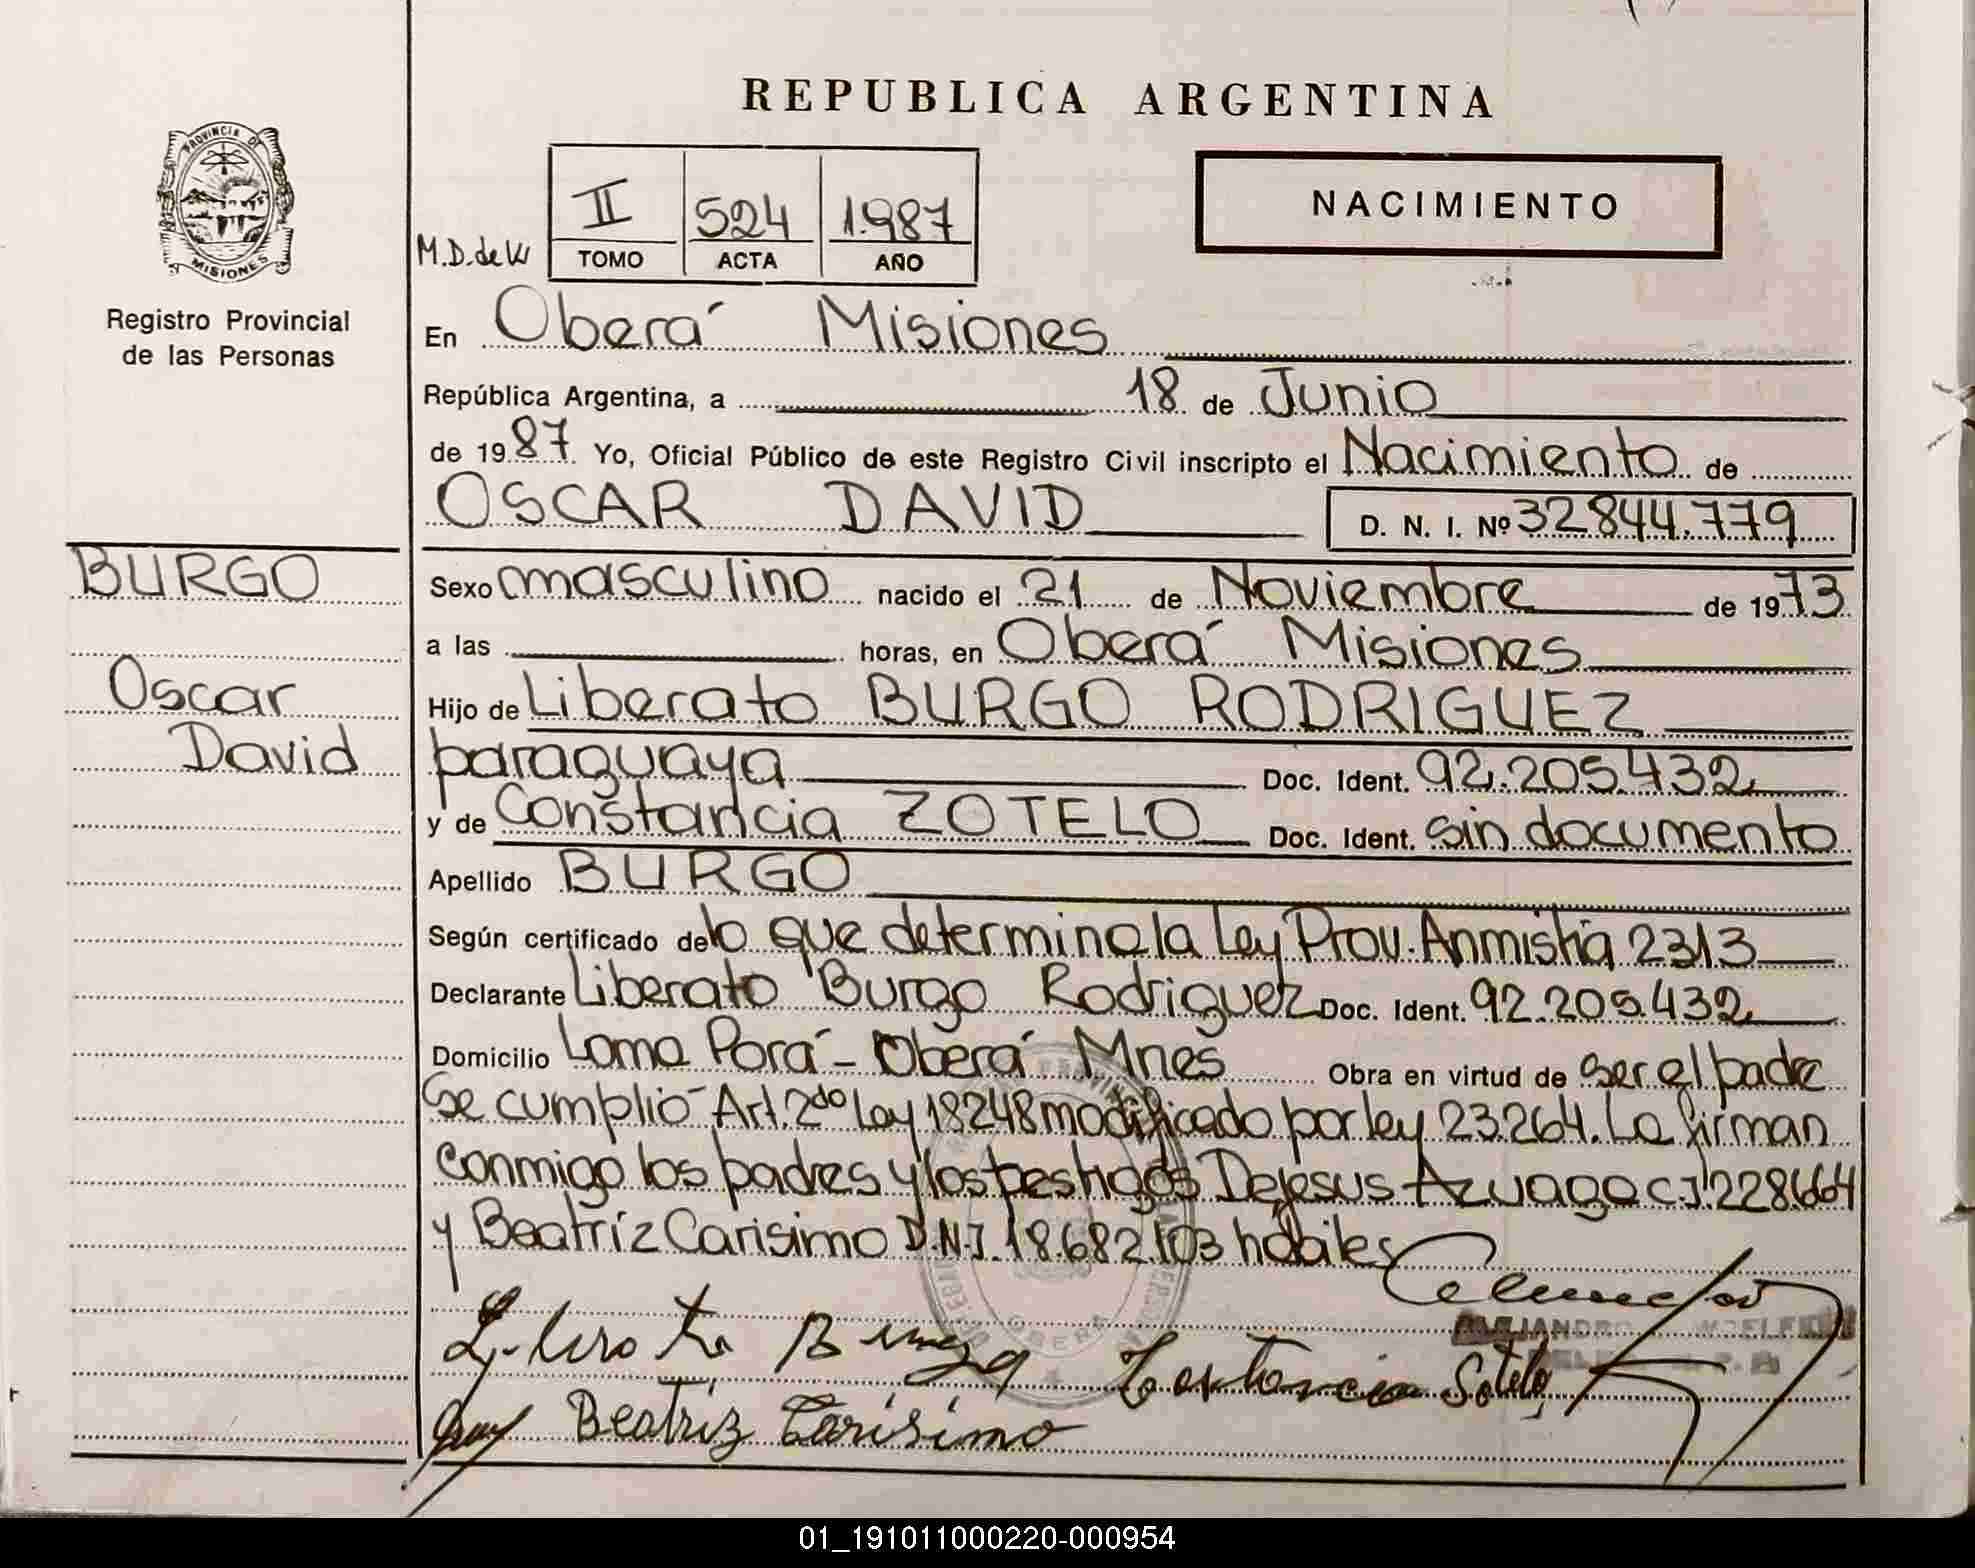 REPUBLICA ARGENTINA
PROVINCIA DE
MISIONES
Registro Provincial
de las Personas
NACIMIENTO
M.D. de W
II 524 1.987
TOMO ACTA AÑO
En Oberá Misiones
República Argentina, a 18 de Junio
de 1987 Yo, Oficial Público de este Registro Civil inscripto el Nacimiento de
OSCAR DAVID D. N. I. Nº 32844.779
BURGO
Oscar
David
Sexo masculino nacido el 21 de Noviembre de 1973
a las horas, en Oberá Misiones
Hijo de Liberato BURGO RODRIGUEZ
paraguaya Doc. Ident. 92.205.432
y de Constancia ZOTELO Doc. Ident. sin documento
Apellido BURGO
Según certificado de lo que determina la Ley Prov. Anmistia 2313
Declarante Liberato Burgo Rodriguez Doc. Ident. 92.205.432
Domicilio Loma Porá - Oberá Mnes Obra en virtud de ser el padre
Se cumplió Art. 2do Ley 18248 modificado por ley 23.264. La firman
conmigo los padres y los testigos Dejesus Azuaga C.I. 228.664
y Beatríz Carisimo D.N.I. 18.682.103 hábiles
OBERA
Constancia Sotelo
Beatriz Carísimo
01_191011000220-000954